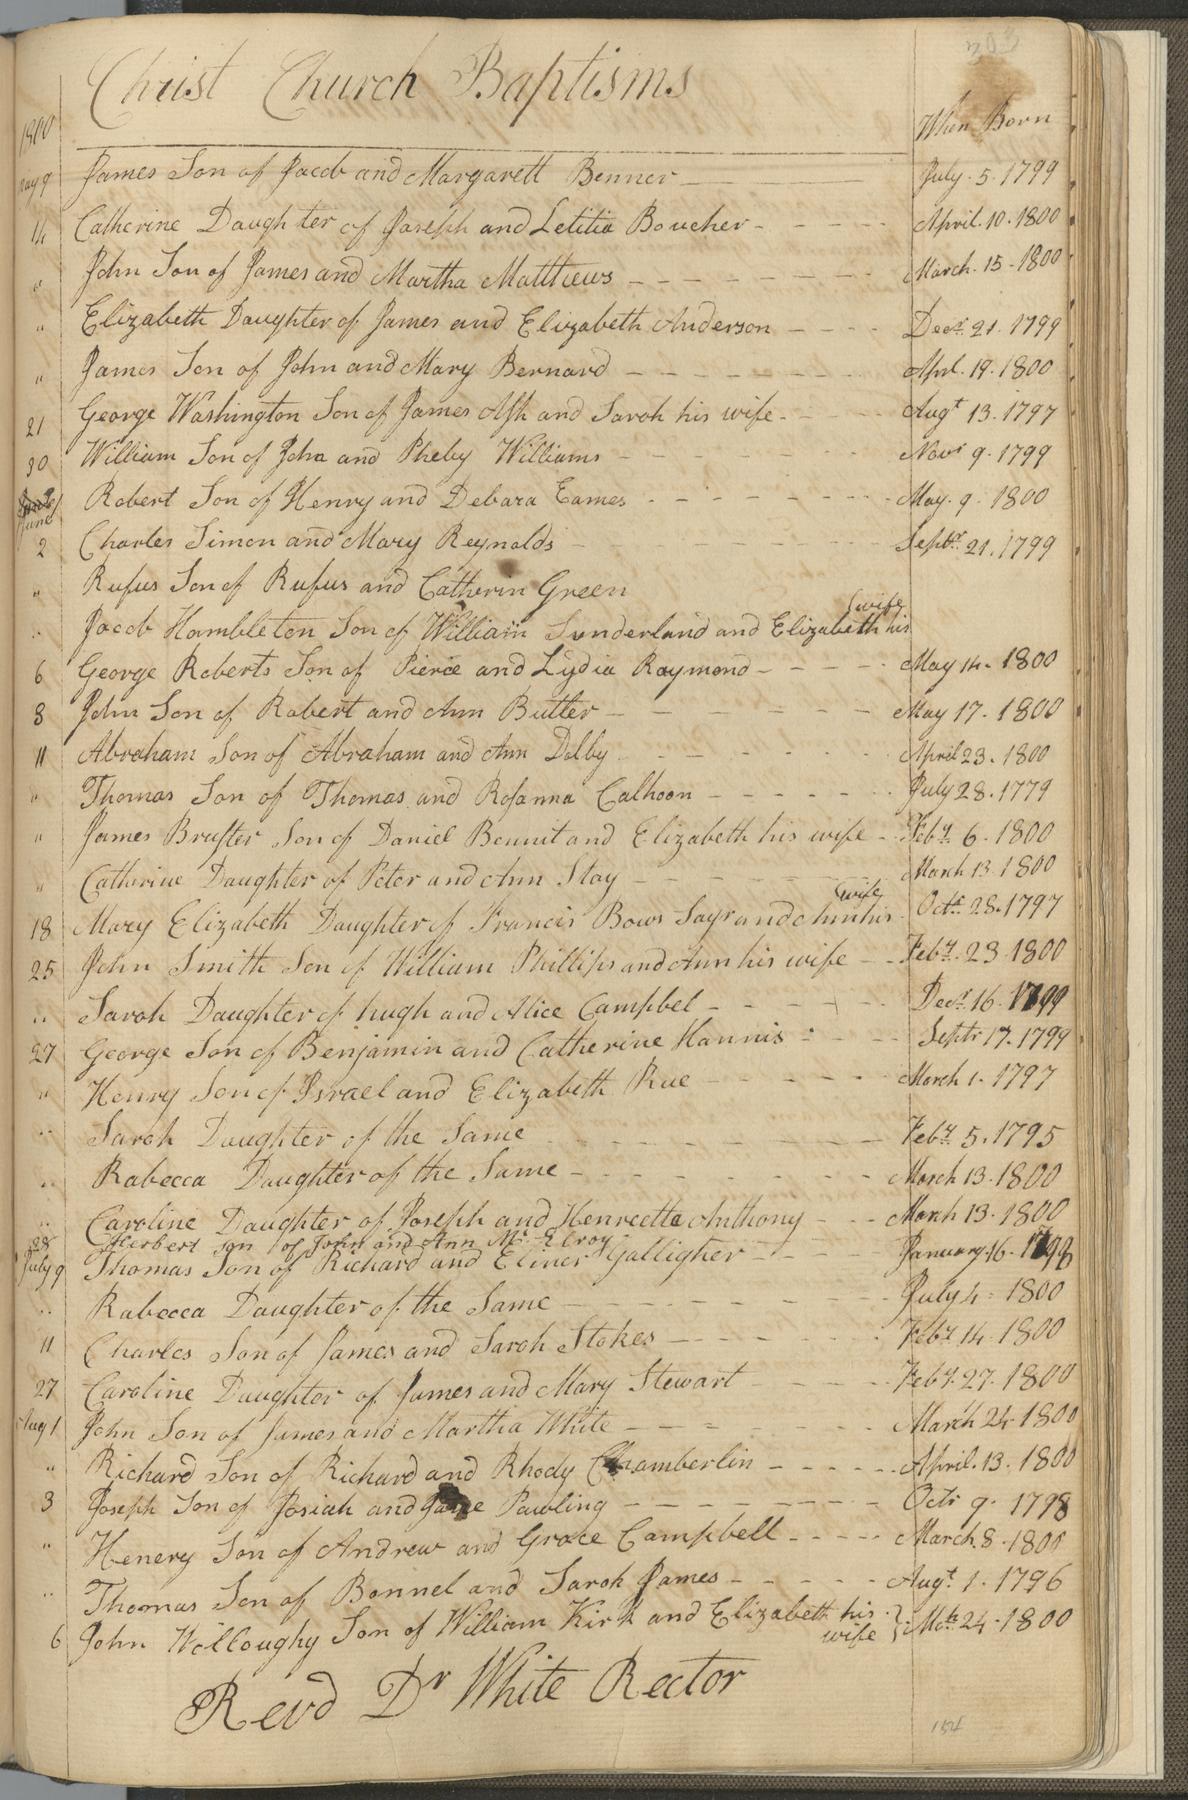 303
Christ Church Baptisms
1800 When Born
May 9 James Son of Jacob and Margarett Benner July. 5. 1799
14 Catherine Daughter of Joseph and Letitia Boucher April. 10. 1800
" John Son of James and Martha Matthews March. 15. 1800
" Elizabeth Daughter of James and Elizabeth Anderson Decr. 21. 1799
" James Son of John and Mary Bernard Aprl. 19. 1800
21 George Washington Son of James Ash and Sarah his wife Augt 13. 1797
30 William Son of John and Pheby Williams Novr 9. 1799
June 1 Robert Son of Henry and Debara Eames May. 9. 1800
2 Charles Simon and Mary Reynolds Septr. 21. 1799
" Rufus Son of Rufus and Catherin Green
" Jacob Hambleton Son of William Sunderland and Elizabeth his wife
6 George Roberts Son of Pierce and Lydia Raymond May 14. 1800
8 John Son of Robert and Ann Butler May 17. 1800
11 Abraham Son of Abraham and Ann Dolby April 23. 1800
" Thomas Son of Thomas and Rosanna Calhoon July 28. 1779
" James Bruster Son of Daniel Bennit and Elizabeth his wife Feby. 6. 1800
" Catherine Daughter of Peter and Ann Stay March 13. 1800
18 Mary Elizabeth Daughter of Francis Bows Sayr and Ann his wife Octr. 28. 1797
25 John Smith Son of William Phillips and Ann his wife Feby. 23. 1800
" Sarah Daughter of hugh and Alice Campbel Decr. 16. 1799
27 George Son of Benjamin and Catherine Hannis Septr 17. 1799
" Henry Son of Israel and Elizabeth Rue March 1. 1797
" Sarah Daughter of the Same Feby. 5. 1795
" Rabecca Daughter of the Same March 13. 1800
" Caroline Daughter of Joseph and Henreette Anthony March 13. 1800
28 Herbert Son of John and Ann Mc Elroy
July 9 Thomas Son of Richard and Elinor Galligher January 16. 1798
" Rabecca Daughter of the Same July 4. 1800
11 Charles Son of James and Sarah Stokes Feby. 14. 1800
27 Caroline Daughter of James and Mary Stewart Feby. 27. 1800
Aug 1 John Son of James and Martha White March 24. 1800
" Richard Son of Richard and Rhody Chamberlin April. 13. 1800
3 Joseph Son of Josiah and Pawling Octr 9. 1798
" Henery Son of Andrew and Grace Campbell March. 8. 1800
" Thomas Son of Bonnel and Sarah James Augt. 1. 1796
6 John Willoughy Son of William Kirk and Elizabeth his wife } Mch. 24. 1800
Revd Dr White Rector
154